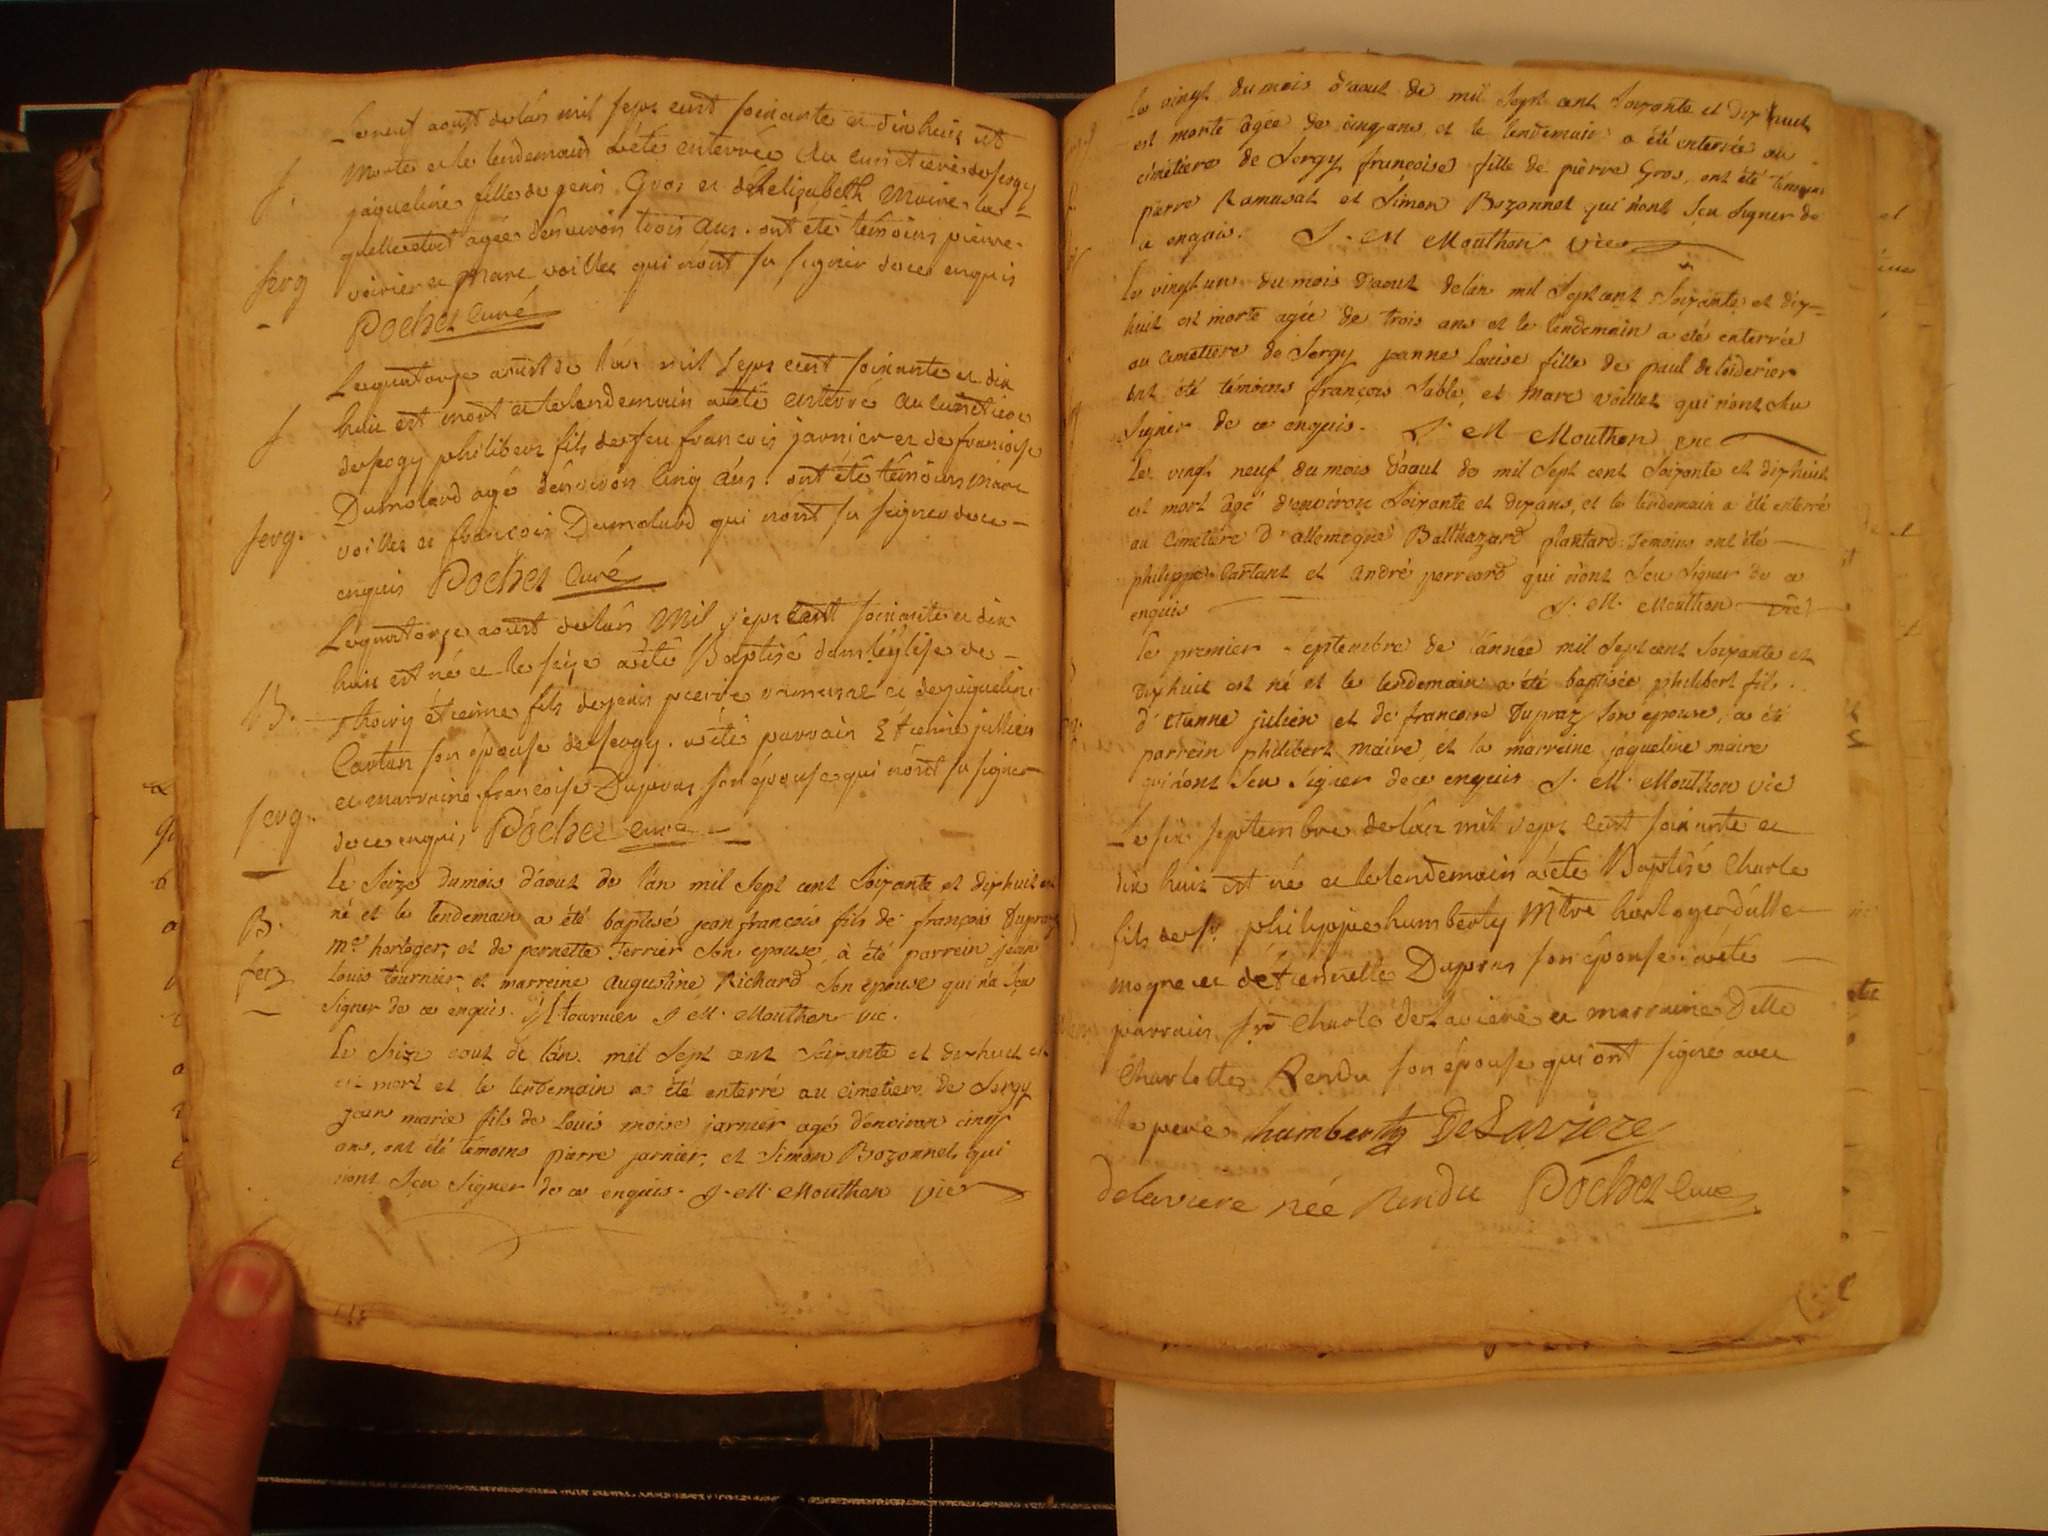 Le neuf aoust de l'an mil sept cent soixante et dix huit est
S.
morte et le lendemain a été enterrée au cimetiere de sergy
jaqueline fille de Gros et de elizabeth Maire la
quelle etoit agée d'environ trois ans. ont été temoins pierre
Serg
voirier et Marc voillet qui n'ont su signer de ce enquis
Pochet Curé
Le quatorze aoust de l'an mil sept cent soixante et dix
S
huit est mort et le lendemain a été enterré au cimetiere
de sergy philibert fils de feu francois jarnier et de francoise
Dumolard agé d'environ cinq ans. ont été temoins marc
Serg.
voillet et francois Dumolard qui n'ont su signer de ce
enquis Pochet Curé
Le quatorze aoust de l'an mil sept cent soixante et dix
huit est né et le seize a été Baptisé dans l'église de
B.
thoiry étienne fils de pierre et de jaqueline
Cartan son épouse de sergy. a été parrain Etienne jullien
et marraine francoise Dupras son épouse qui n'ont su signer
Serg.
de ce enquis Pochet curé
Le Seize du mois d'aout de l'an mil Sept cent Soixante et dixhuit est
B.
né et le lendemain a été baptisé jean francois fils de francois Dupraz
me horloger, et de pernette Terrier Son epouse, à été parrein jean
Serg
louis tournier, et marreine Augustine Richard Son epouse qui n'a Seu
Signer de ce enquis. tournier J. M. Mouthon vic.
Le Seize aout de l'an mil Sept cent Soixante et dixhuit
est mort et le lendemain a été enterré au cimetiere de Sergy
jean marie fils de Louis moise jarnier agé d'environ cinq
ans, ont été témoins pierre jarnier, et Simon Bozonnet qui
n'ont Seu Signer de ce enquis. J. M. Mouthon vic
Le vingt du mois d'aout de mil Sept cent Soixante et Dix huit
est morte âgée de cinq ans, et le lendemain a été enterrée au
cimétiere de Sergy françoise fille de pierre Gros, ont été témoins
pierre Ramusat et Simon Bozonnet qui n'ont Seu Signer de
ce enquis. J. M Mouthon vic
Le vingt un du mois d'aout de l'an mil Sept cent Soixante et dix
huit est morte agée de trois ans et le lendemain a été enterrée
au cimetiere de Sergy jeanne Louise fille de paul
ont été témoins françois Sable, et Marc voillet qui n'ont Seu
Signer de ce enquis. J. M Mouthon vic
Le vingt neuf du mois d'aout de mil Sept cent Soixante et dixhuit
est mort agé d'environ Soixante et dix ans, et le lendemain a été enterré
au cimetiere D'allemogne Balthazard plantard temoins ont été
philippe Cartant et André perreard qui n'ont Seu Signer de ce
enquis J. M. Mouthon vic
Le premier Septembre de l'année mil Sept cent Soixante et
Dixhuit est né et le lendemain a été baptisée philibert fils
d'Etienne julien et de francoise Dupraz Son épouse, a été
parrein philibert maire, et la marreine jaqueline maire
qui n'ont Seu Signer de ce enquis J. M. Mouthon vic
Le six septembre de l'an mil sept cent soixante et
dix huit est né et le lendemain a été Baptisé Charle
fils de Sr. philippe humberty Mtre horloger d'alle
mogne et de étiennette Dupras son épouse a été
parrain Sr. Charle de Laviere et marraine Delle
Charlotte Rendu son épouse qui ont signé avec
le pere humberty DeLaviere
delaviere née Rendu Pochet Curé